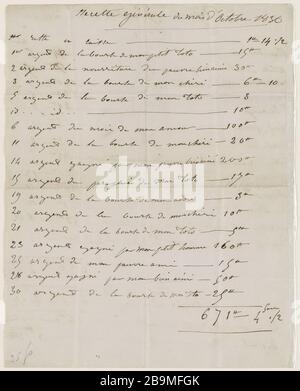 Recette générale du mois d'Octobre 1836
1er reste en caisse — 14 1/2
1er argent de la bourse de mon petit Toto — 15
2 argent de la nourriture du pauvre bien aimé 30
3 argent de la bourse de mon chéri — 6 — 10
5 argent de la bourse de mon Toto — 8
id . . . id . . — 10
6 argent du mois de mon amour — 100
11 argent de la bourse de mon chéri — 20
14 argent gagné par mon pauvre bien aimé 200
15 argent de mon Toto — 15
19 argent de la bourse de mon — 8
20 argent de la bourse de mon chéri 10
21 argent de la bourse de mon Toto — 5
23 argent gagné par mon petit homme 160
25 argent de mon pauvre ami — 15
28 argent gagné par mon bien aimé — 50
30 argent de la bourse de mon Toto — 25
671 4 1/2
alamy
Image ID: 2B9MFGK
www.alamy.com